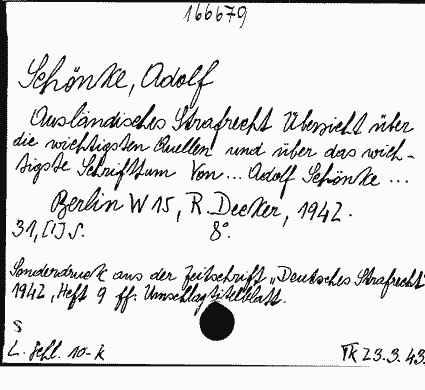 166679
Schönke, Adolf
Ausländisches Strafrecht Übersicht über
die wichtigsten Quellen und über das wich-
tigste Schrifttum Von... Adolf Schönke ...
Berlin W 15, R. Decker, 1942.
31, [1] S. 8°.
Sonderdruck aus der Zeitschrift „Deutsches Strafrecht"
1942, Heft 9 ff. Umschlagtitelblatt.
S
L. Schl. 10-k
TK 23.3.43.